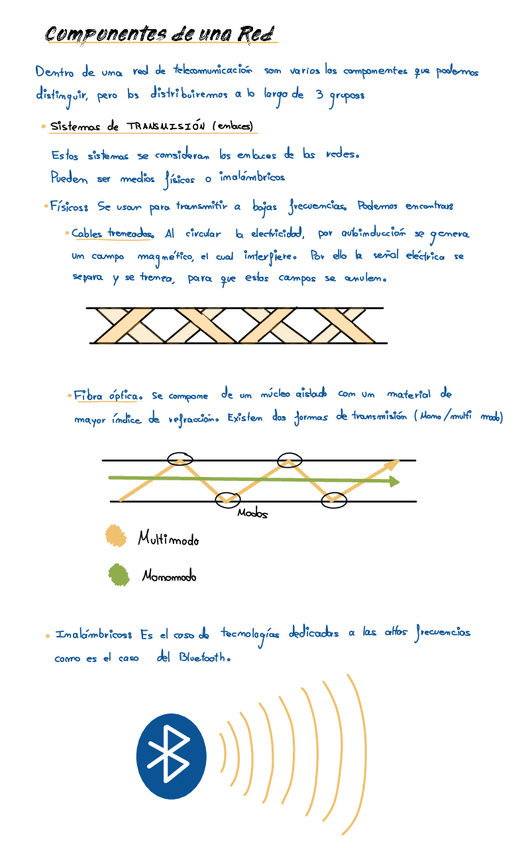 Componentes de una Red
Dentro de una red de telecomunicación son varios los componentes que podemos
distinguir, pero los distribuiremos a lo largo de 3 grupos:
• Sistemas de TRANSMISIÓN (enlaces)
Estos sistemas se consideran los enlaces de las redes.
Pueden ser medios físicos o inalámbricos
• Físicos: Se usan para transmitir a bajas frecuencias. Podemos encontrar:
• Cables trenzados. Al circular la electricidad, por autoinducción se genera
un campo magnético, el cual interfiere. Por ello la señal eléctrica se
separa y se trenza, para que estos campos se anulen.
• Fibra óptica. Se compone de un núcleo aislado con un material de
mayor índice de refracción. Existen dos formas de transmisión (Mono/multi modo)
Modos
Multimodo
Monomodo
• Inalámbricos: Es el caso de tecnologías dedicadas a las altas frecuencias
como es el caso del Bluetooth.